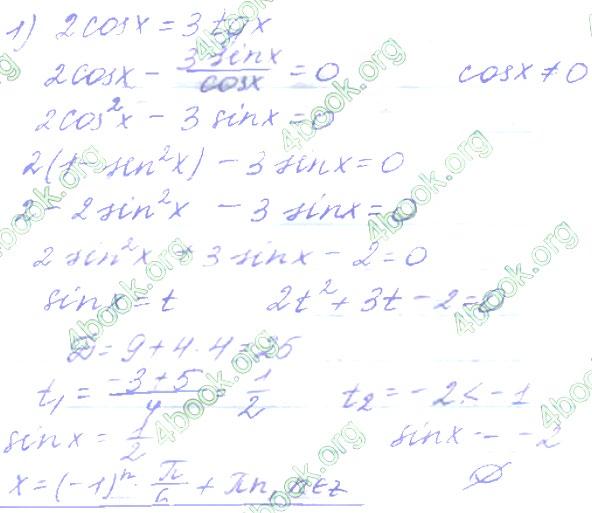 1) 2cosx = 3tgx
2cosx - 3sinx/cosx = 0 cosx ≠ 0
2cos²x - 3sinx = 0
2(1 - sin²x) - 3sinx = 0
2 - 2sin²x - 3sinx = 0
2sin²x + 3sinx - 2 = 0
sinx = t 2t² + 3t - 2 = 0
D = 9 + 4·4 = 25
t₁ = (-3+5)/4 = 1/2 t₂ = -2 < -1
sinx = 1/2 sinx = -2
x = (-1)ⁿ · π/6 + πn, n∈z ∅
4book.org
4book.org
4book.org
4book.org
4book.org
4book.org
4book.org
4book.org
4book.org